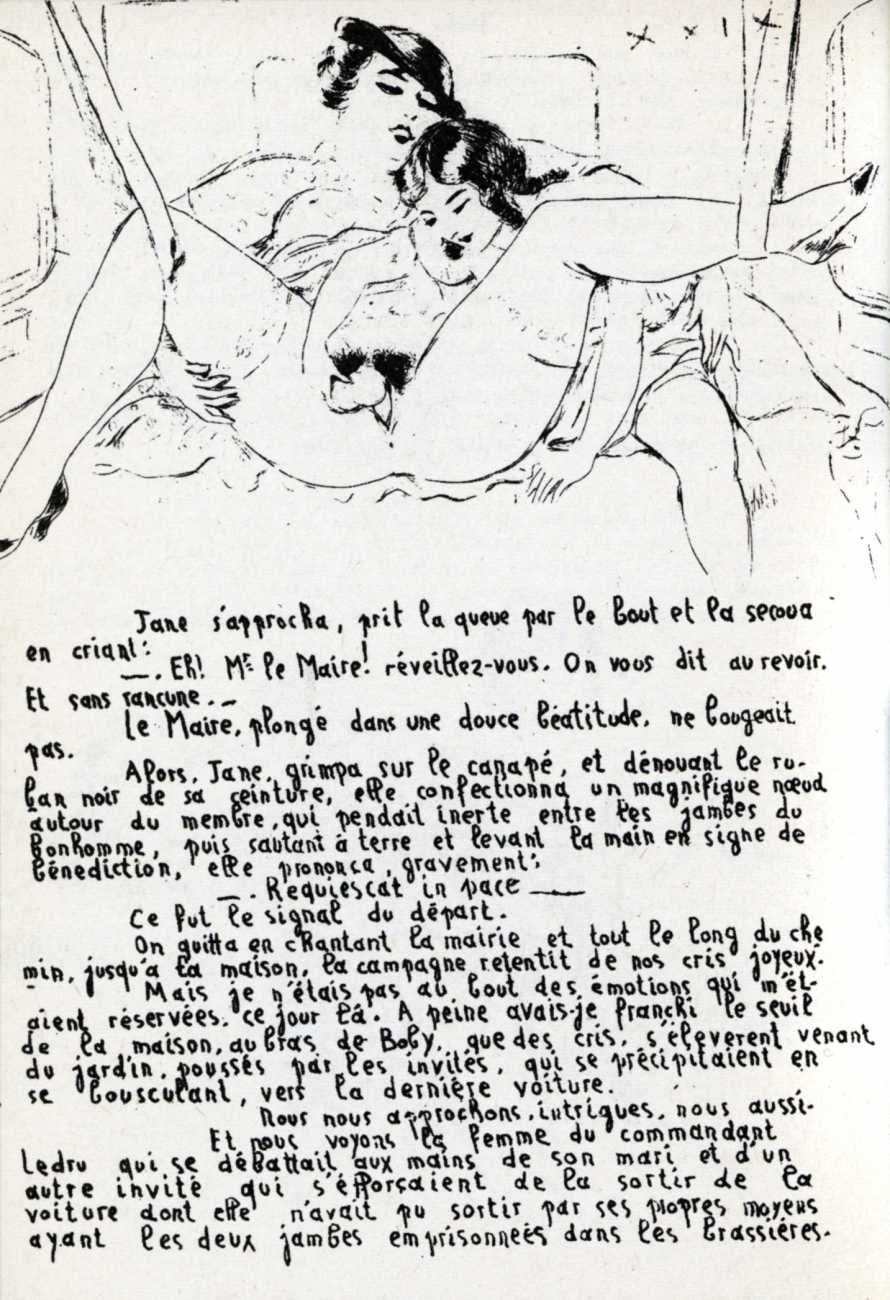 Jane s'approcha, prit la queue par le bout et la secoua
en criant:
—. Eh! Mr le Maire! réveillez-vous. On vous dit au revoir.
Et sans rancune. —
Le Maire, plongé dans une douce béatitude, ne bougeait
pas.
Alors, Jane, grimpa sur le canapé, et dénouant le ru-
ban noir de sa ceinture, elle confectionna un magnifique nœud
autour du membre, qui pendait inerte entre les jambes du
bonhomme, puis sautant à terre et levant la main en signe de
bénediction, elle prononça, gravement:
—. Requiescat in pace —
Ce fut le signal du départ.
On quitta en chantant la mairie et tout le long du che
min, jusqu'a la maison, la campagne retentit de nos cris joyeux.
Mais je n'étais pas au bout des émotions qui m'ét-
aient réservées, ce jour là. A peine avais-je franchi le seuil
de la maison, au bras de Boby, que des cris, s'éleverent venant
du jardin, poussés par les invités, qui se précipitaient en
se bousculant, vers la dernière voiture.
Nous nous approchons, intrigues, nous aussi.
Et nous voyons la femme du commandant
Ledru qui se débattait aux mains de son mari et d'un
autre invité qui s'éfforçaient de la sortir de la
voiture dont elle n'avait pu sortir par ses propres moyens
ayant les deux jambes emprisonnées dans les brassières.